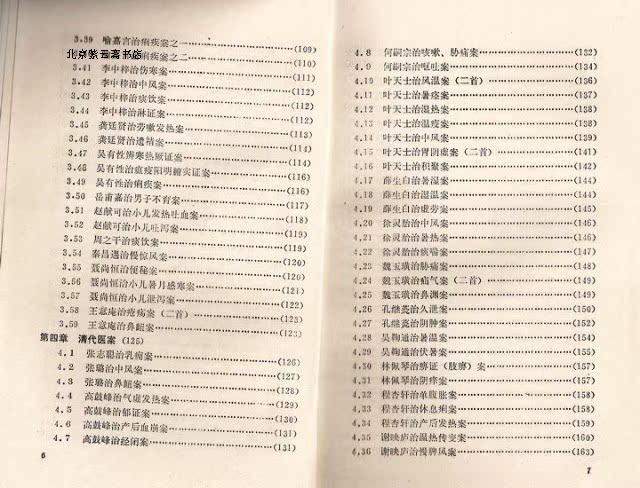 3.39 喻嘉言治痢疾案之一……(109)
北京紫云斋书店
案之二……(110)
3.41 李中梓治伤寒案……(111)
3.42 李中梓治中风案……(112)
3.43 李中梓治痰饮案……(112)
3.44 李中梓治淋证案……(112)
3.45 龚廷贤治劳嗽发热案……(113)
3.46 龚廷贤治遗精案……(114)
3.47 吴有性辨寒热厥证案……(114)
3.48 吴有性治瘟疫阳明腑实证案……(116)
3.49 吴有性治痢疾案……(116)
3.50 岳甫嘉治男子不育案……(117)
3.51 赵献可治小儿发热吐血案……(118)
3.52 赵献可治小儿吐泻案……(119)
3.53 周之干治痰饮案……(119)
3.54 秦昌遇治慢惊风案……(120)
3.55 聂尚恒治便秘案……(120)
3.56 聂尚恒治小儿暑月感寒案……(121)
3.57 聂尚恒治小儿泄泻案……(122)
3.58 王意庵治痞病案（二首）……(123)
3.59 王意庵治鼻衄案……(123)
第四章 清代医案 (125)
4.1 张志聪治乳痈案……(126)
4.2 张璐治中风案……(127)
4.3 张璐治鼻衄案……(128)
4.4 高鼓峰治气虚发热案……(129)
4.5 高鼓峰治郁证案……(130)
4.6 高鼓峰治产后血崩案……(131)
4.7 高鼓峰治经闭案……(131)
6
4.8 何嗣宗治咳嗽、胁痛案……(132)
4.9 何嗣宗治呕吐案……(134)
4.10 叶天士治风温案（二首）……(136)
4.11 叶天士治暑痉案……(137)
4.12 叶天士治湿热案……(138)
4.13 叶天士治温疫案……(138)
4.14 叶天士治中风案……(139)
4.15 叶天士治胃阴虚案（二首）……(141)
4.16 叶天士治积聚案……(142)
4.17 薛生白治暑湿案……(144)
4.18 薛生白治湿温案……(144)
4.19 薛生白治虚劳案……(145)
4.20 徐灵胎治中风案……(146)
4.21 徐灵胎治暑热案……(146)
4.22 徐灵胎治痰喘案……(147)
4.23 魏玉璜治胁痛案……(148)
4.24 魏玉璜治疝气案（二首）……(149)
4.25 魏玉璜治鼻渊案……(149)
4.26 孔继菼治久泄案……(150)
4.27 孔继菼治阴肿案……(152)
4.28 吴鞠通治温案……(154)
4.29 吴鞠通治伏暑案……(155)
4.30 林佩琴治痹证（肢痹）案……(157)
4.31 林佩琴治阴痒案……(157)
4.32 程杏轩治单腹胀案……(158)
4.33 程杏轩治休息痢案……(158)
4.34 程杏轩治产后发热案……(159)
4.35 谢映庐治温热传变案……(160)
4.36 谢映庐治慢脾风案……(163)
7